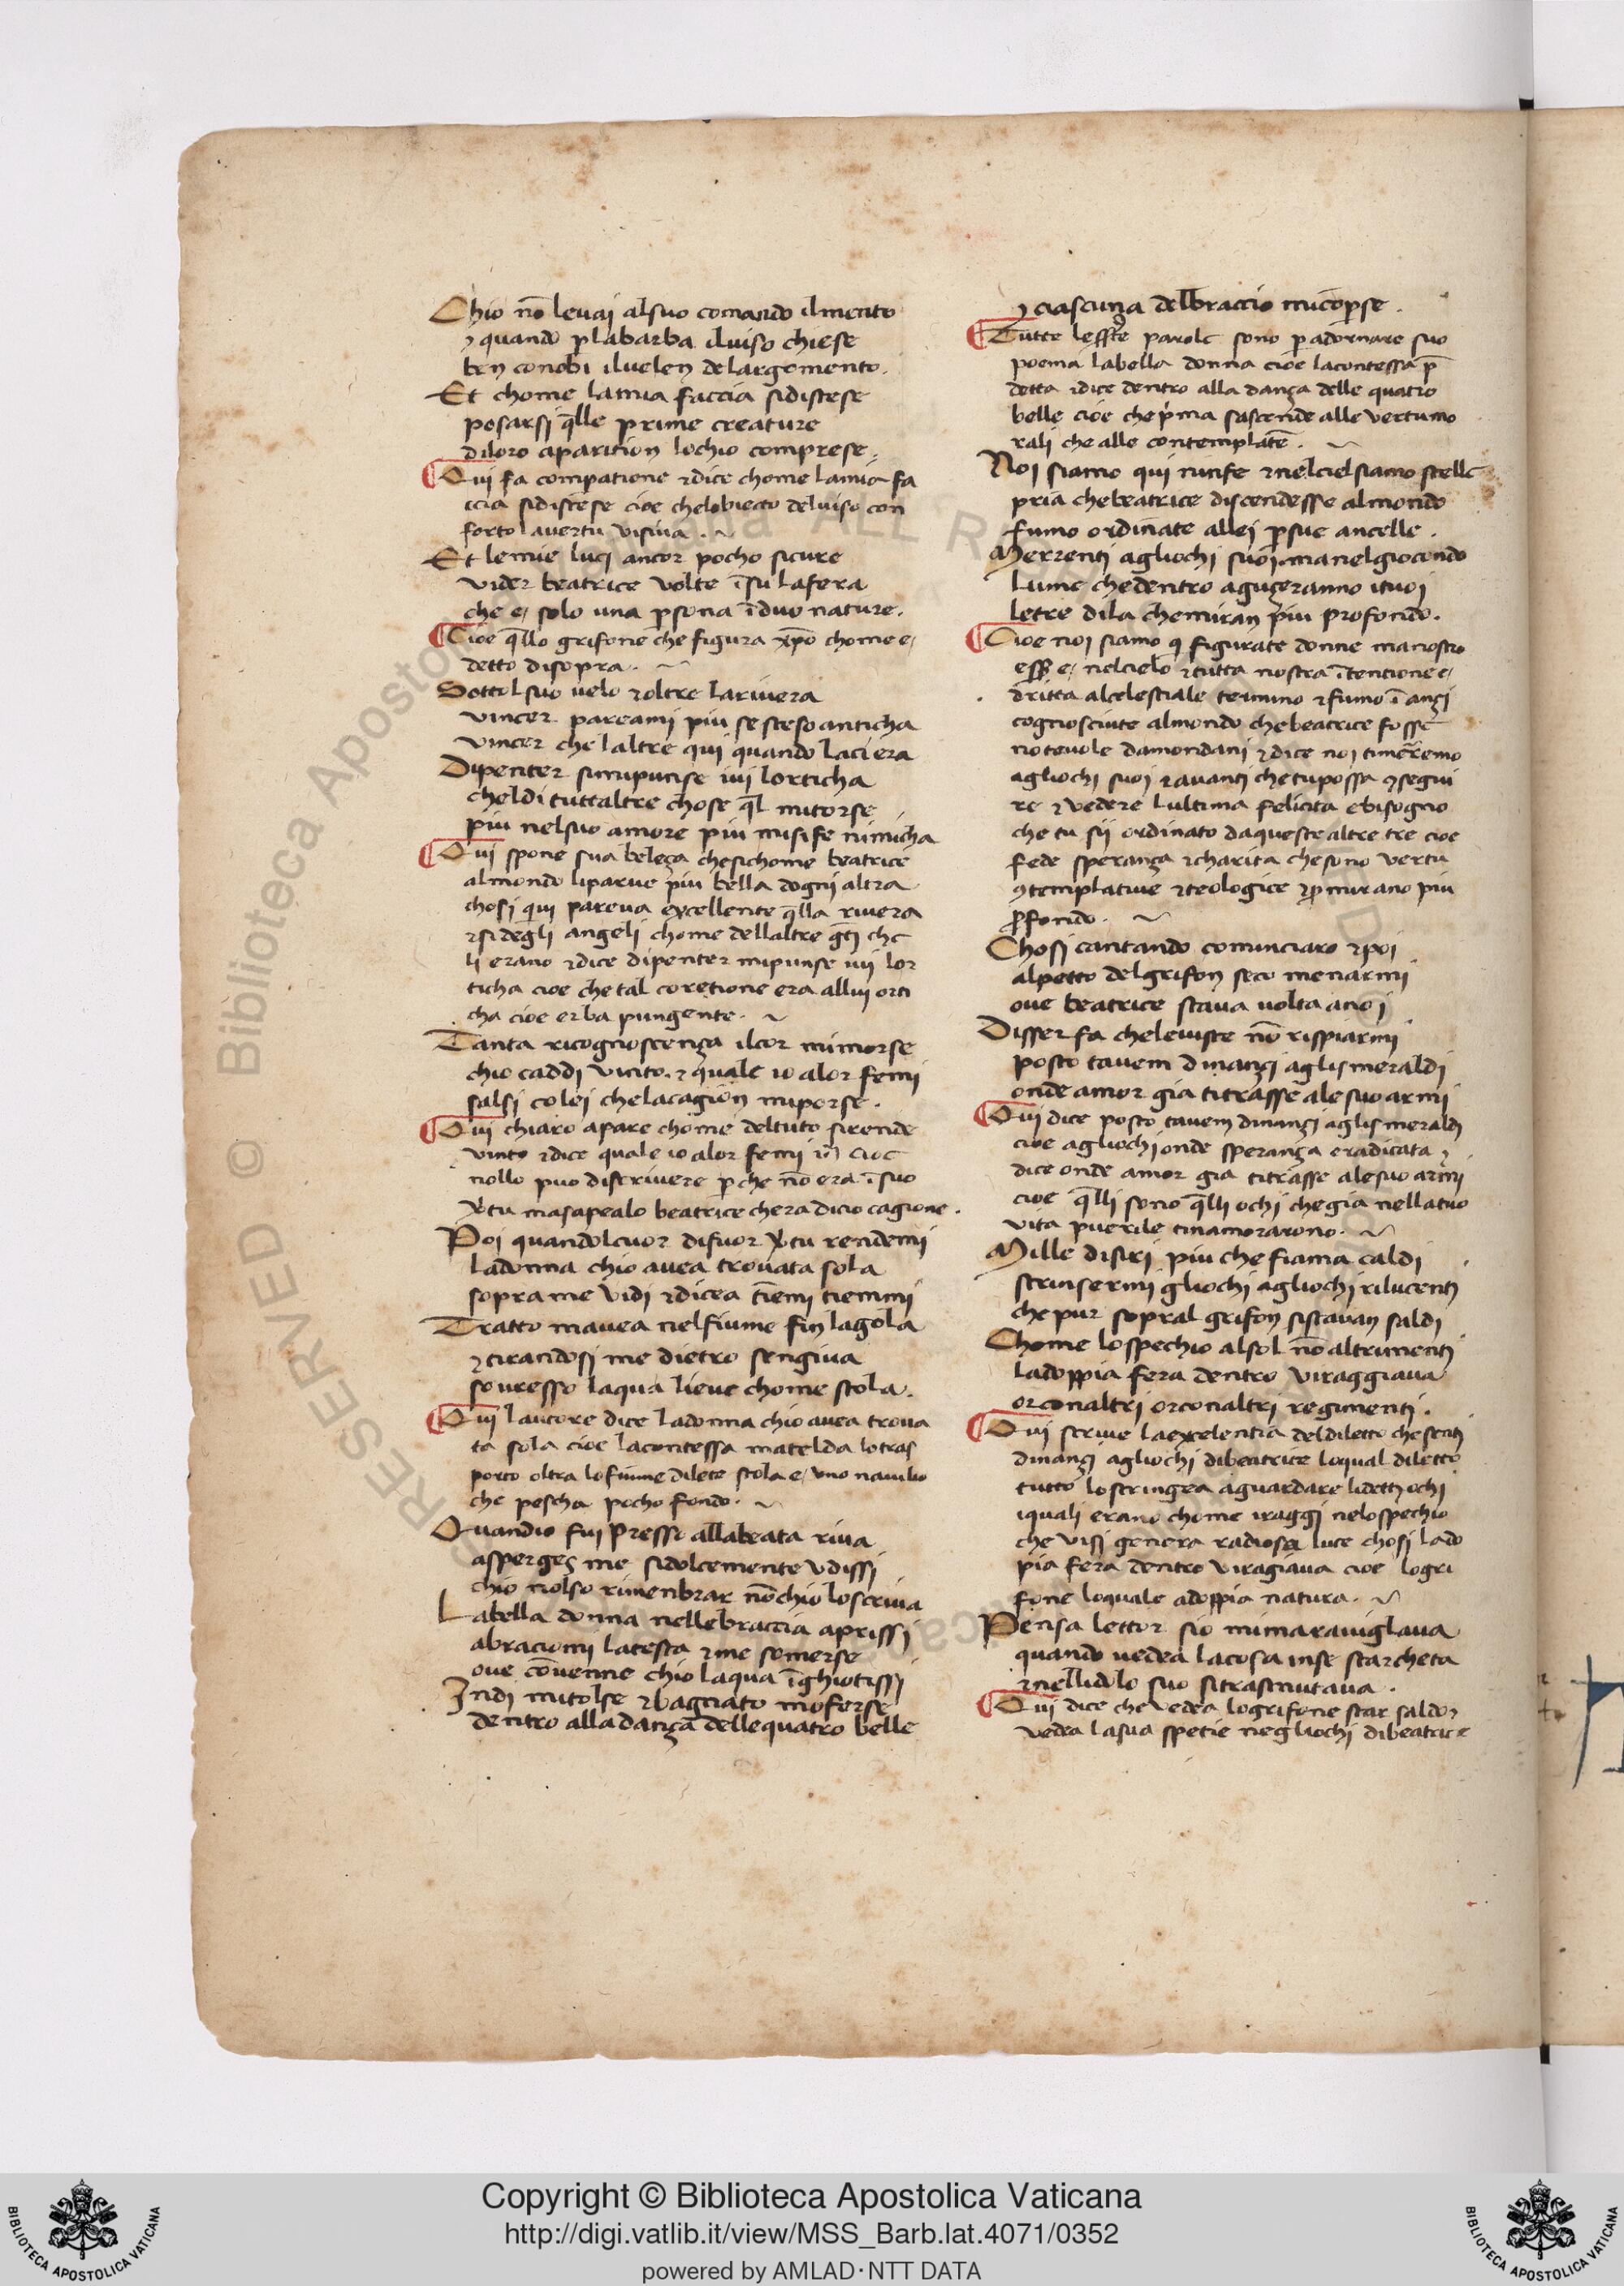 Chio nõ leuaj alsuo comando ilmento
⁊ quando p̱ labarba iluiso chiese
ben conobi iluelen delargomento.
Et chome lamia faccia sidistese
posarsi q̄lle prime creature
diloro aparition lochio comprese.
Qui fa compatione ⁊dice chome lamia fa
ccia sidistese cioe chelobiecto deluiso con
forto lauertu visiua.
Et lemie lucj ancor pocho sicure
vider beatrice volte ĩsu lafera
che e/ solo una p̱sona ĩduo nature.
Cioe q̄llo grifone che figura xp̄o chome e/
detto disopra.
Sottol suo uelo ⁊oltre lariuera
vincer pareami piu se stesso anticha
vincer che laltre qui quando laci era
Dipenter simipunse iui lorticha
cheldi tuttaltre chose q̄l mitorse
piu nelsuo amore piu misife nimicha
Qui spone sua beleça chesichome beatrice
almondo liparue piu bella dogni altra
chosi qiui pareua excellente q̄lla riuera
⁊si degli angeli chome dellaltre gēti che
li erano ⁊dice dipenter mipunse iui lor
ticha cioe che tal coretione era allui orti
cha cioe erba pungente.
Tanta ricognoscenza ilcor mimorse
chio caddi vinto. ⁊ quale io alor femi
salsi colei chelacagion miporse.
Qui chiaro apare chome deltuto sirende
vinto ⁊dice quale io alor femi cioe
nollo puo discriuere p̱che nõ era ĩ suo
v̄tu masapealo beatrice chera dicio cagione.
Poi quandolcuor difuor v̄tu rendemi
ladonna chio auea trouata sola
sopra me vidi ⁊dicea tiẽmi tiemmi
Tratto mauea nelfiume fin lagola
⁊tirandosi me dietro sengiua
souresso laqua lieue chome stola.
Qui lautore dice ladonna chio auea troua
ta sola cioe lacontessa matelda lotras
porto oltra lofiume dilete stola e/ vno nauilio
che pescha pocho fondo.
Quandio fui presso allabeata riua
asperges me sidolcemente vdissi
chio nolso rimenbrar nõchio loscriua
Labella donna nellebraccia aprissi
abraciomi latesta ⁊me somerse
oue cõuenne chio laqua ĩghiotissi
Indi mitolse ⁊bagnato moferse
dentro alladança dellequatro belle
⁊ ciascuna delbraccio micop̱se.
Tutte parole sono p̱ adornare suo
poema labella donna cioe lacontessa p̄
detta ⁊dice dentro alla dança delle quatro
belle cioe che p̱ma sascende alle vertu mo
rali che alle contemplatē.
Noi siamo qui ninfe ⁊nelciel siamo stelle
pria chebeatrice discendesse almondo
fumo ordinate allei p̱sue ancelle.
Merrenti agliochi suoi. manelgiocondo
lume chedentro aguçeranno ituoi
letre dila chemiran piu profondo.
Cioe noi siamo q̇ figurate donne manostro
ess̄ e/ nelcielo ⁊tutta nostra ĩtentione e/
dritta alcelestiale termino ⁊fumo ĩ anzi
cognosciute almondo chebeatrice fosse
noteuole damondani ⁊dice noi timer̃emo
agliochi suoi ⁊auanti chetu possa ꝯsegui
re ⁊ vedere lultima felicita ebisogno
che tu sij ordinato daqueste altre tre cioe
fede sperança ⁊charita chesono vertu
ꝯtemplatiue ⁊teologice mirano piu
ꝓfondo.
Chosi cantando cominciaro ⁊poi
alpetto delgrifon seco menarmi
oue beatrice staua volta anoi
Disser fa cheleuiste nõ rispiarmi
posto tauem dinanzi aglismeraldi
onde amor gia titrasse alesuo armi
Qui dice posto tauem dinanzi aglismeraldi
cioe agliochi onde sperança eradicata ⁊
dice onde amor gia titrasse alesuo armi
cioe q̄lli sono q̄lli ochi chegia nellatuo
vita puerile tinamorarono.
Mille disiri piu che fiama caldi
strinsermi gliochi agliochi rilucenti
che pur sopral grifon sistauan saldi
Chome lospechio alsol nõ altrimenti
ladoppia fera dentro viraggiaua
orconaltri orconaltri regimenti.
Qui scriue laexcelentia deldiletto chesenti
dinanzi agliochi dibeatrice loqual diletto
tutto lostringea aguardare lidetti ochi
iquali erano chome iraggi nelospechio
che visi genera radiosa luce chosi lado
pia fera dentro viragiaua cioe logri
fone loquale adoppia natura.
Pensa lettor sio mimarauiglaua
quando uedea lacosa inse starcheta
⁊nellidolo suo sitrasmutaua.
Qui dice che vedea logrifone star saldo ⁊
vedea lasua spetie negliochi dibeatrice
Copyright © Biblioteca Apostolica Vaticana
http://digi.vatlib.it/view/MSS_Barb.lat.4071/0352
powered by AMLAD·NTT DATA